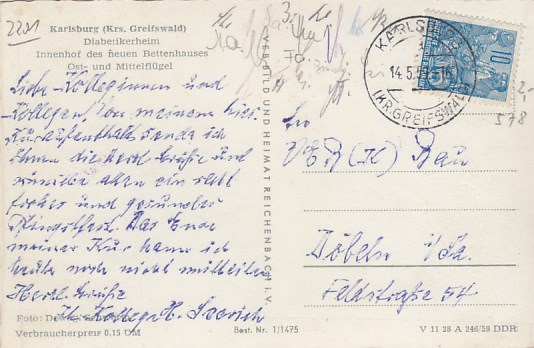 2201
Karlsburg (Krs. Greifswald)
Diabetikerheim
Innenhof des neuen Bettenhauses
Ost- und Mittelflügel
Liebe Kolleginnen und
Kollegen, Von meinem hies.
Kuraufenthalt sende ich
Ihnen die herzl. Grüße und
wünsche allen ein recht
frohes und gesundes
Pfingstfest. Das Ende
meiner Kur kann ich
heute noch nicht mitteilen
Herzl. Grüße
Ihr Kollege H.
Foto:
Verbraucherpreis 0.15 DM
VERBILD UND HEIMAT REICHENBACH i. V.
Best. Nr. 1/1475
KARLSBURG
14.5.59
(KR. GREIFSWALD)
10
2,-
578
An
VEB (K) Bau
Döbeln i/Sa.
Feldstraße 54
V 11 28 A 246/59 DDR